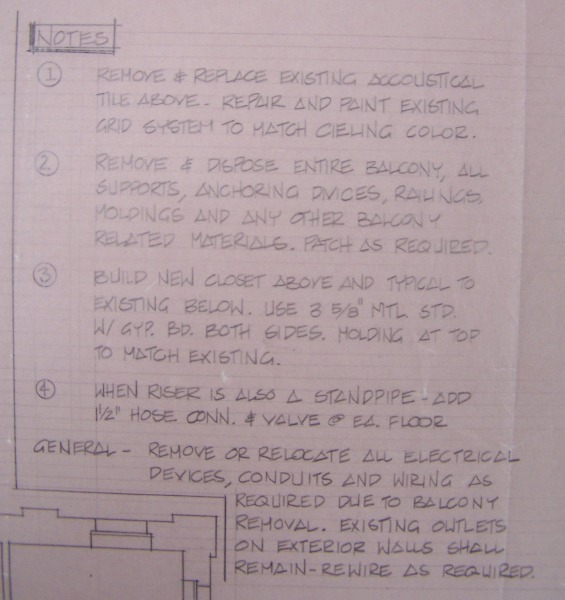 NOTES
1 REMOVE & REPLACE EXISTING ACCOUSTICAL
TILE ABOVE - REPAIR AND PAINT EXISTING
GRID SYSTEM TO MATCH CIELING COLOR.
2 REMOVE & DISPOSE ENTIRE BALCONY, ALL
SUPPORTS, ANCHORING DIVICES, RAILINGS,
MOLDINGS AND ANY OTHER BALCONY
RELATED MATERIALS. PATCH AS REQUIRED.
3 BUILD NEW CLOSET ABOVE AND TYPICAL TO
EXISTING BELOW. USE 3 5/8" MTL STD.
W/ GYP. BD. BOTH SIDES. MOLDING AT TOP
TO MATCH EXISTING.
4 WHEN RISER IS ALSO A STANDPIPE - ADD
1 1/2" HOSE CONN. & VALVE @ EA. FLOOR
GENERAL - REMOVE OR RELOCATE ALL ELECTRICAL
DEVICES, CONDUITS AND WIRING AS
REQUIRED DUE TO BALCONY
REMOVAL. EXISTING OUTLETS
ON EXTERIOR WALLS SHALL
REMAIN - REWIRE AS REQUIRED.